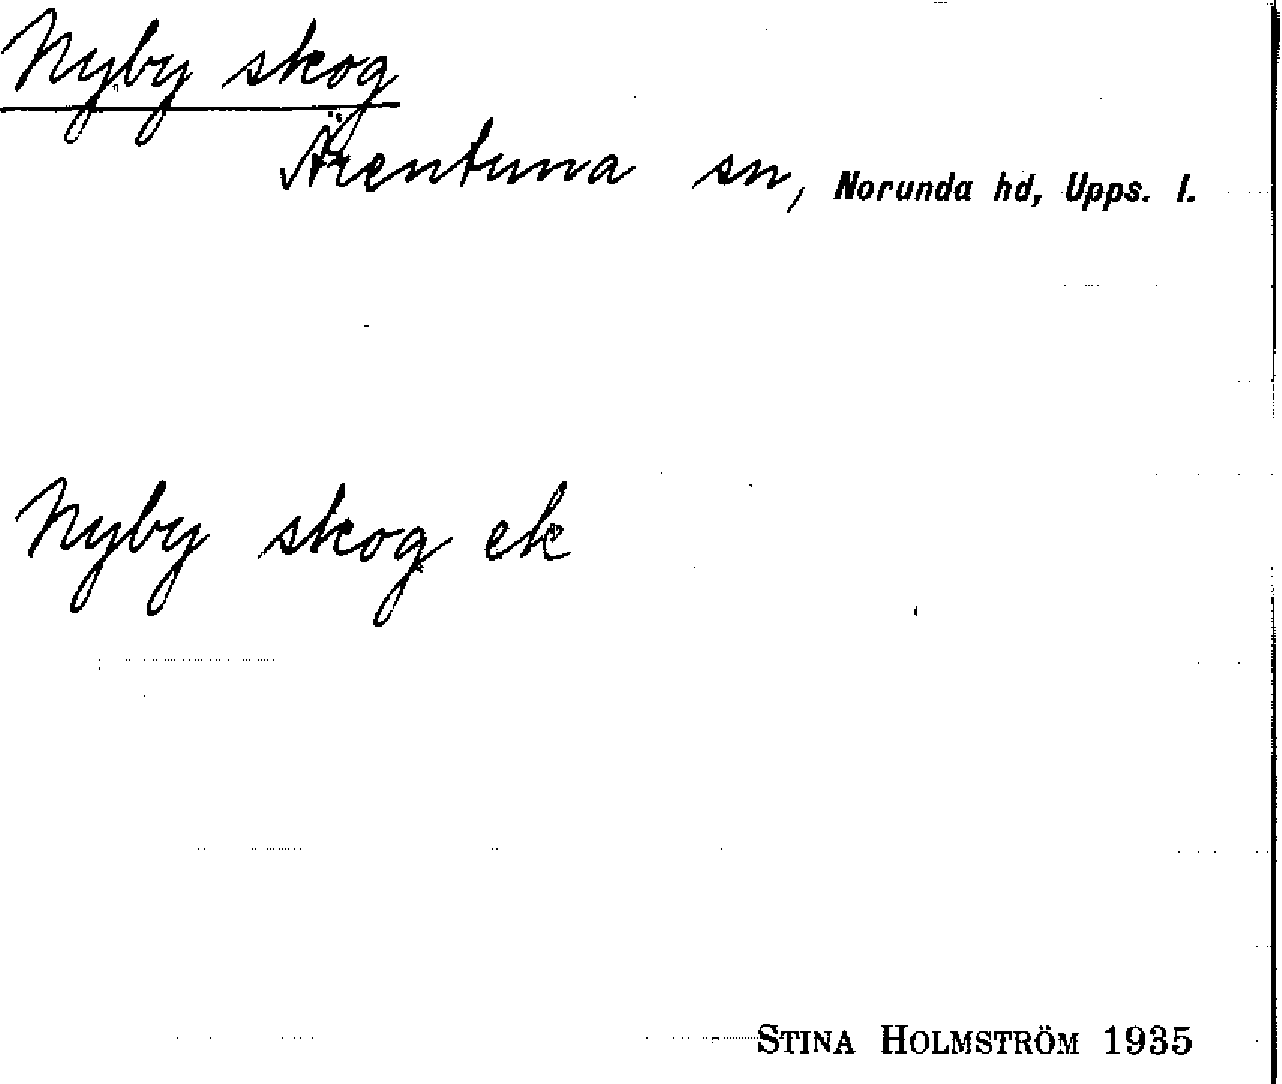 Nyby skog
Ärentuna sn, Norunda hd, Upps. l.
Nyby skog ek
STINA HOLMSTRÖM 1935